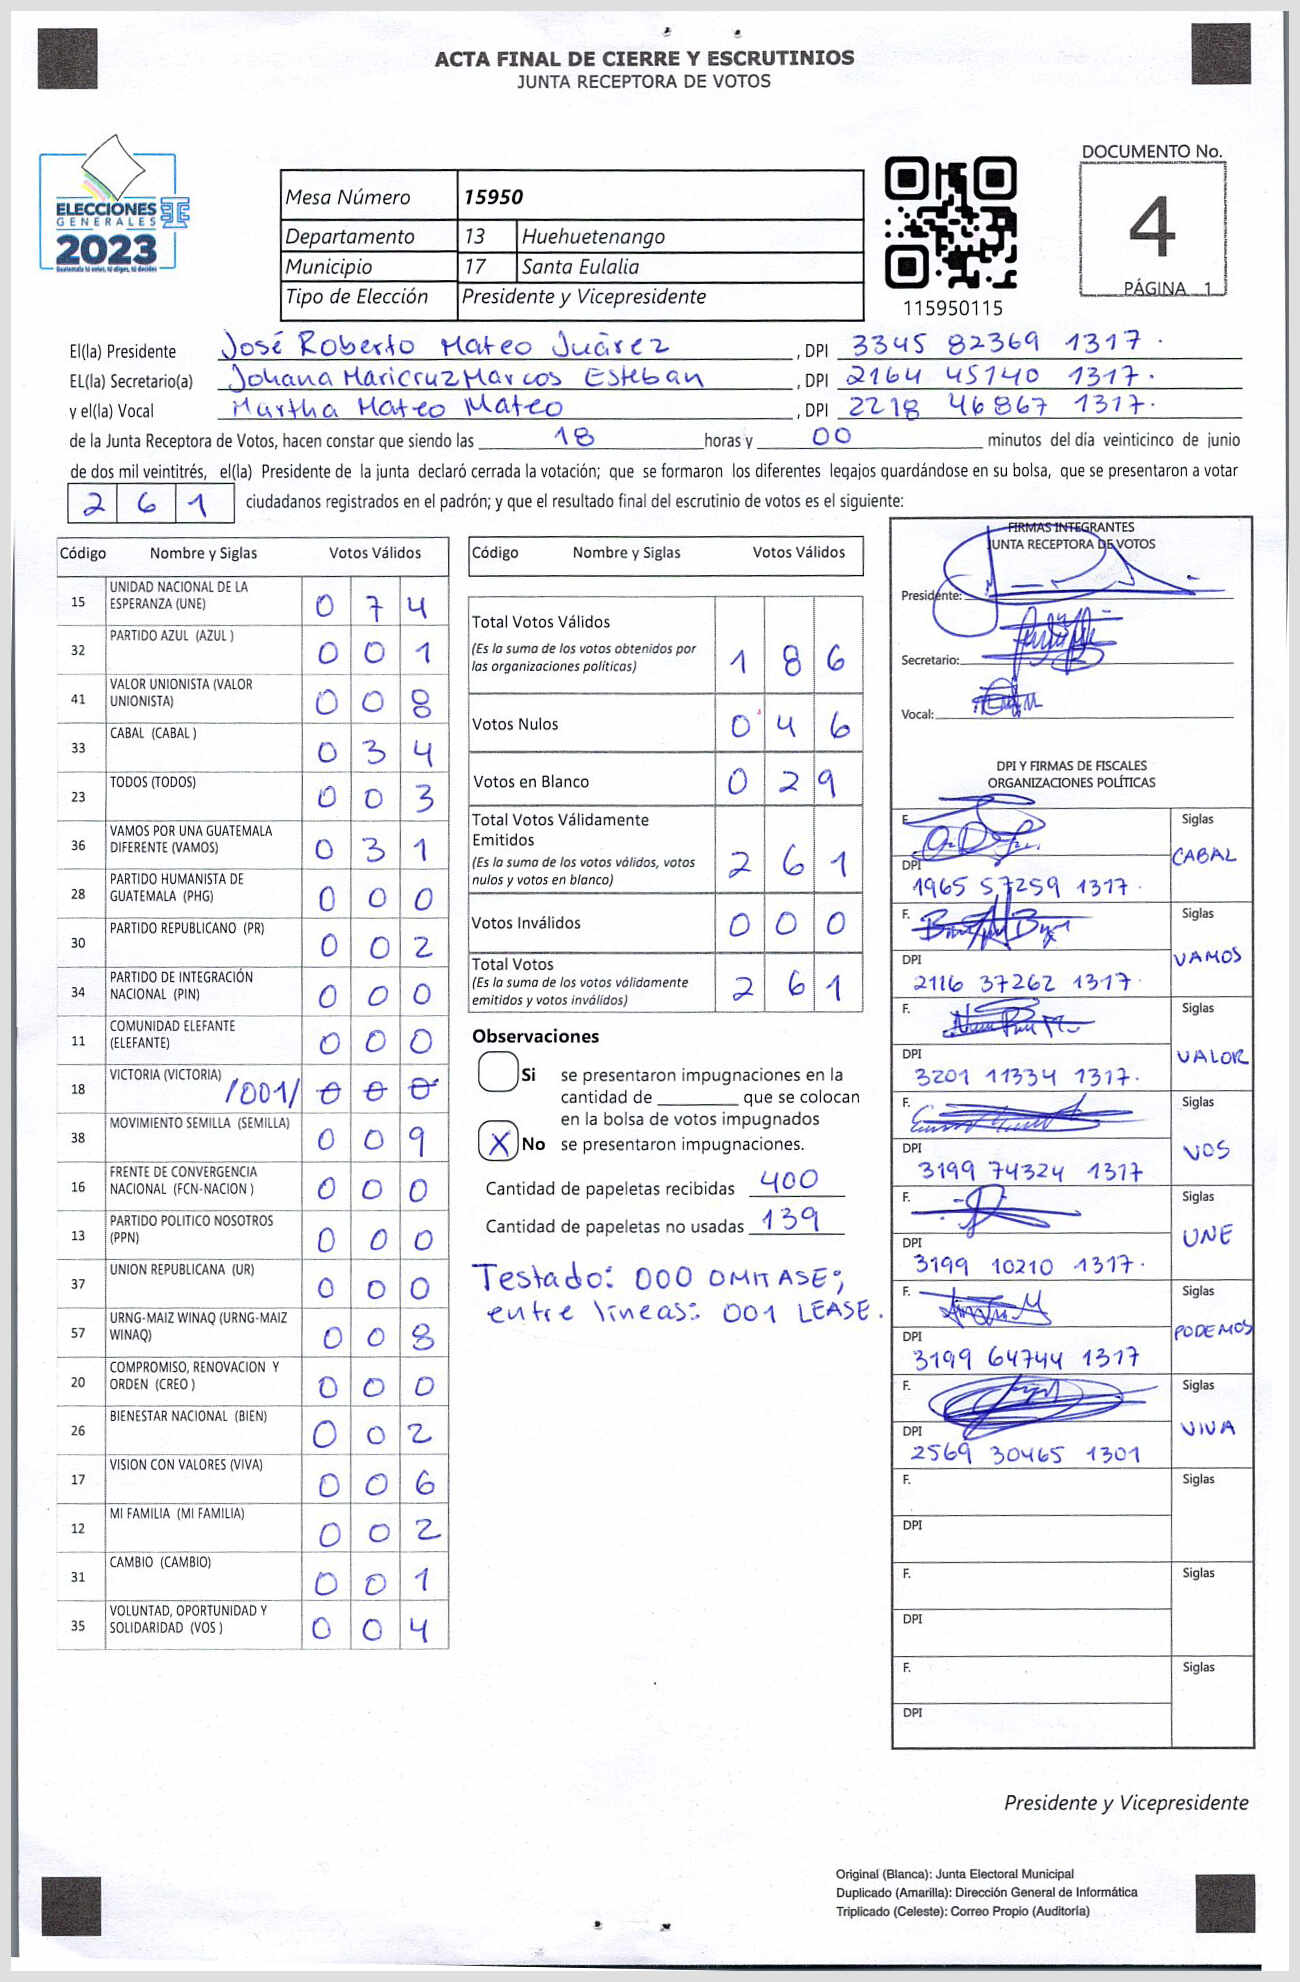 ACTA FINAL DE CIERRE Y ESCRUTINIOS
JUNTA RECEPTORA DE VOTOS
ELECCIONES
GENERALES
2023
Guatemala tú votas, tú eliges, tú decides
Mesa Número 15950
Departamento 13 Huehuetenango
Municipio 17 Santa Eulalia
Tipo de Elección Presidente y Vicepresidente
115950115
DOCUMENTO No.
4
PÁGINA 1
El(la) Presidente José Roberto Mateo Juárez , DPI 3345 82369 1317.
EL(la) Secretario(a) Johana Maricruz Marcos Esteban , DPI 2164 45140 1317.
y el(la) Vocal Martha Mateo Mateo , DPI 2218 46867 1317.
de la Junta Receptora de Votos, hacen constar que siendo las 18 horas y 00 minutos del día veinticinco de junio
de dos mil veintitrés, el(la) Presidente de la junta declaró cerrada la votación; que se formaron los diferentes legajos guardándose en su bolsa, que se presentaron a votar
2 6 1 ciudadanos registrados en el padrón; y que el resultado final del escrutinio de votos es el siguiente:
Código Nombre y Siglas Votos Válidos
15 UNIDAD NACIONAL DE LA ESPERANZA (UNE) 0 7 4
32 PARTIDO AZUL (AZUL ) 0 0 1
41 VALOR UNIONISTA (VALOR UNIONISTA) 0 0 8
33 CABAL (CABAL ) 0 3 4
23 TODOS (TODOS) 0 0 3
36 VAMOS POR UNA GUATEMALA DIFERENTE (VAMOS) 0 3 1
28 PARTIDO HUMANISTA DE GUATEMALA (PHG) 0 0 0
30 PARTIDO REPUBLICANO (PR) 0 0 2
34 PARTIDO DE INTEGRACIÓN NACIONAL (PIN) 0 0 0
11 COMUNIDAD ELEFANTE (ELEFANTE) 0 0 0
18 VICTORIA (VICTORIA) /001/ 0 0 0
38 MOVIMIENTO SEMILLA (SEMILLA) 0 0 9
16 FRENTE DE CONVERGENCIA NACIONAL (FCN-NACION ) 0 0 0
13 PARTIDO POLITICO NOSOTROS (PPN) 0 0 0
37 UNION REPUBLICANA (UR) 0 0 0
57 URNG-MAIZ WINAQ (URNG-MAIZ WINAQ) 0 0 8
20 COMPROMISO, RENOVACION Y ORDEN (CREO ) 0 0 0
26 BIENESTAR NACIONAL (BIEN) 0 0 2
17 VISION CON VALORES (VIVA) 0 0 6
12 MI FAMILIA (MI FAMILIA) 0 0 2
31 CAMBIO (CAMBIO) 0 0 1
35 VOLUNTAD, OPORTUNIDAD Y SOLIDARIDAD (VOS ) 0 0 4
Código Nombre y Siglas Votos Válidos
Total Votos Válidos
(Es la suma de los votos obtenidos por
las organizaciones políticas) 1 8 6
Votos Nulos 0 4 6
Votos en Blanco 0 2 9
Total Votos Válidamente
Emitidos
(Es la suma de los votos válidos, votos
nulos y votos en blanco) 2 6 1
Votos Inválidos 0 0 0
Total Votos
(Es la suma de los votos válidamente
emitidos y votos inválidos) 2 6 1
Observaciones
Si se presentaron impugnaciones en la
cantidad de ________ que se colocan
en la bolsa de votos impugnados
X No se presentaron impugnaciones.
Cantidad de papeletas recibidas 400
Cantidad de papeletas no usadas 139
Testado: 000 OMITASE;
entre líneas: 001 LEASE.
FIRMAS INTEGRANTES
JUNTA RECEPTORA DE VOTOS
Presidente:
Secretario:
Vocal:
DPI Y FIRMAS DE FISCALES
ORGANIZACIONES POLÍTICAS
F. Siglas
CABAL
DPI
1965 57259 1317.
F. Siglas
VAMOS
DPI
2116 37262 1317.
F. Siglas
VALOR
DPI
3201 11334 1317.
F. Siglas
VOS
DPI
3199 74324 1317
F. Siglas
UNE
DPI
3199 10210 1317.
F. Siglas
PODEMOS
DPI
3199 64744 1317
F. Siglas
VIVA
DPI
2569 30465 1301
F. Siglas
DPI
F. Siglas
DPI
F. Siglas
DPI
Presidente y Vicepresidente
Original (Blanca): Junta Electoral Municipal
Duplicado (Amarilla): Dirección General de Informática
Triplicado (Celeste): Correo Propio (Auditoría)